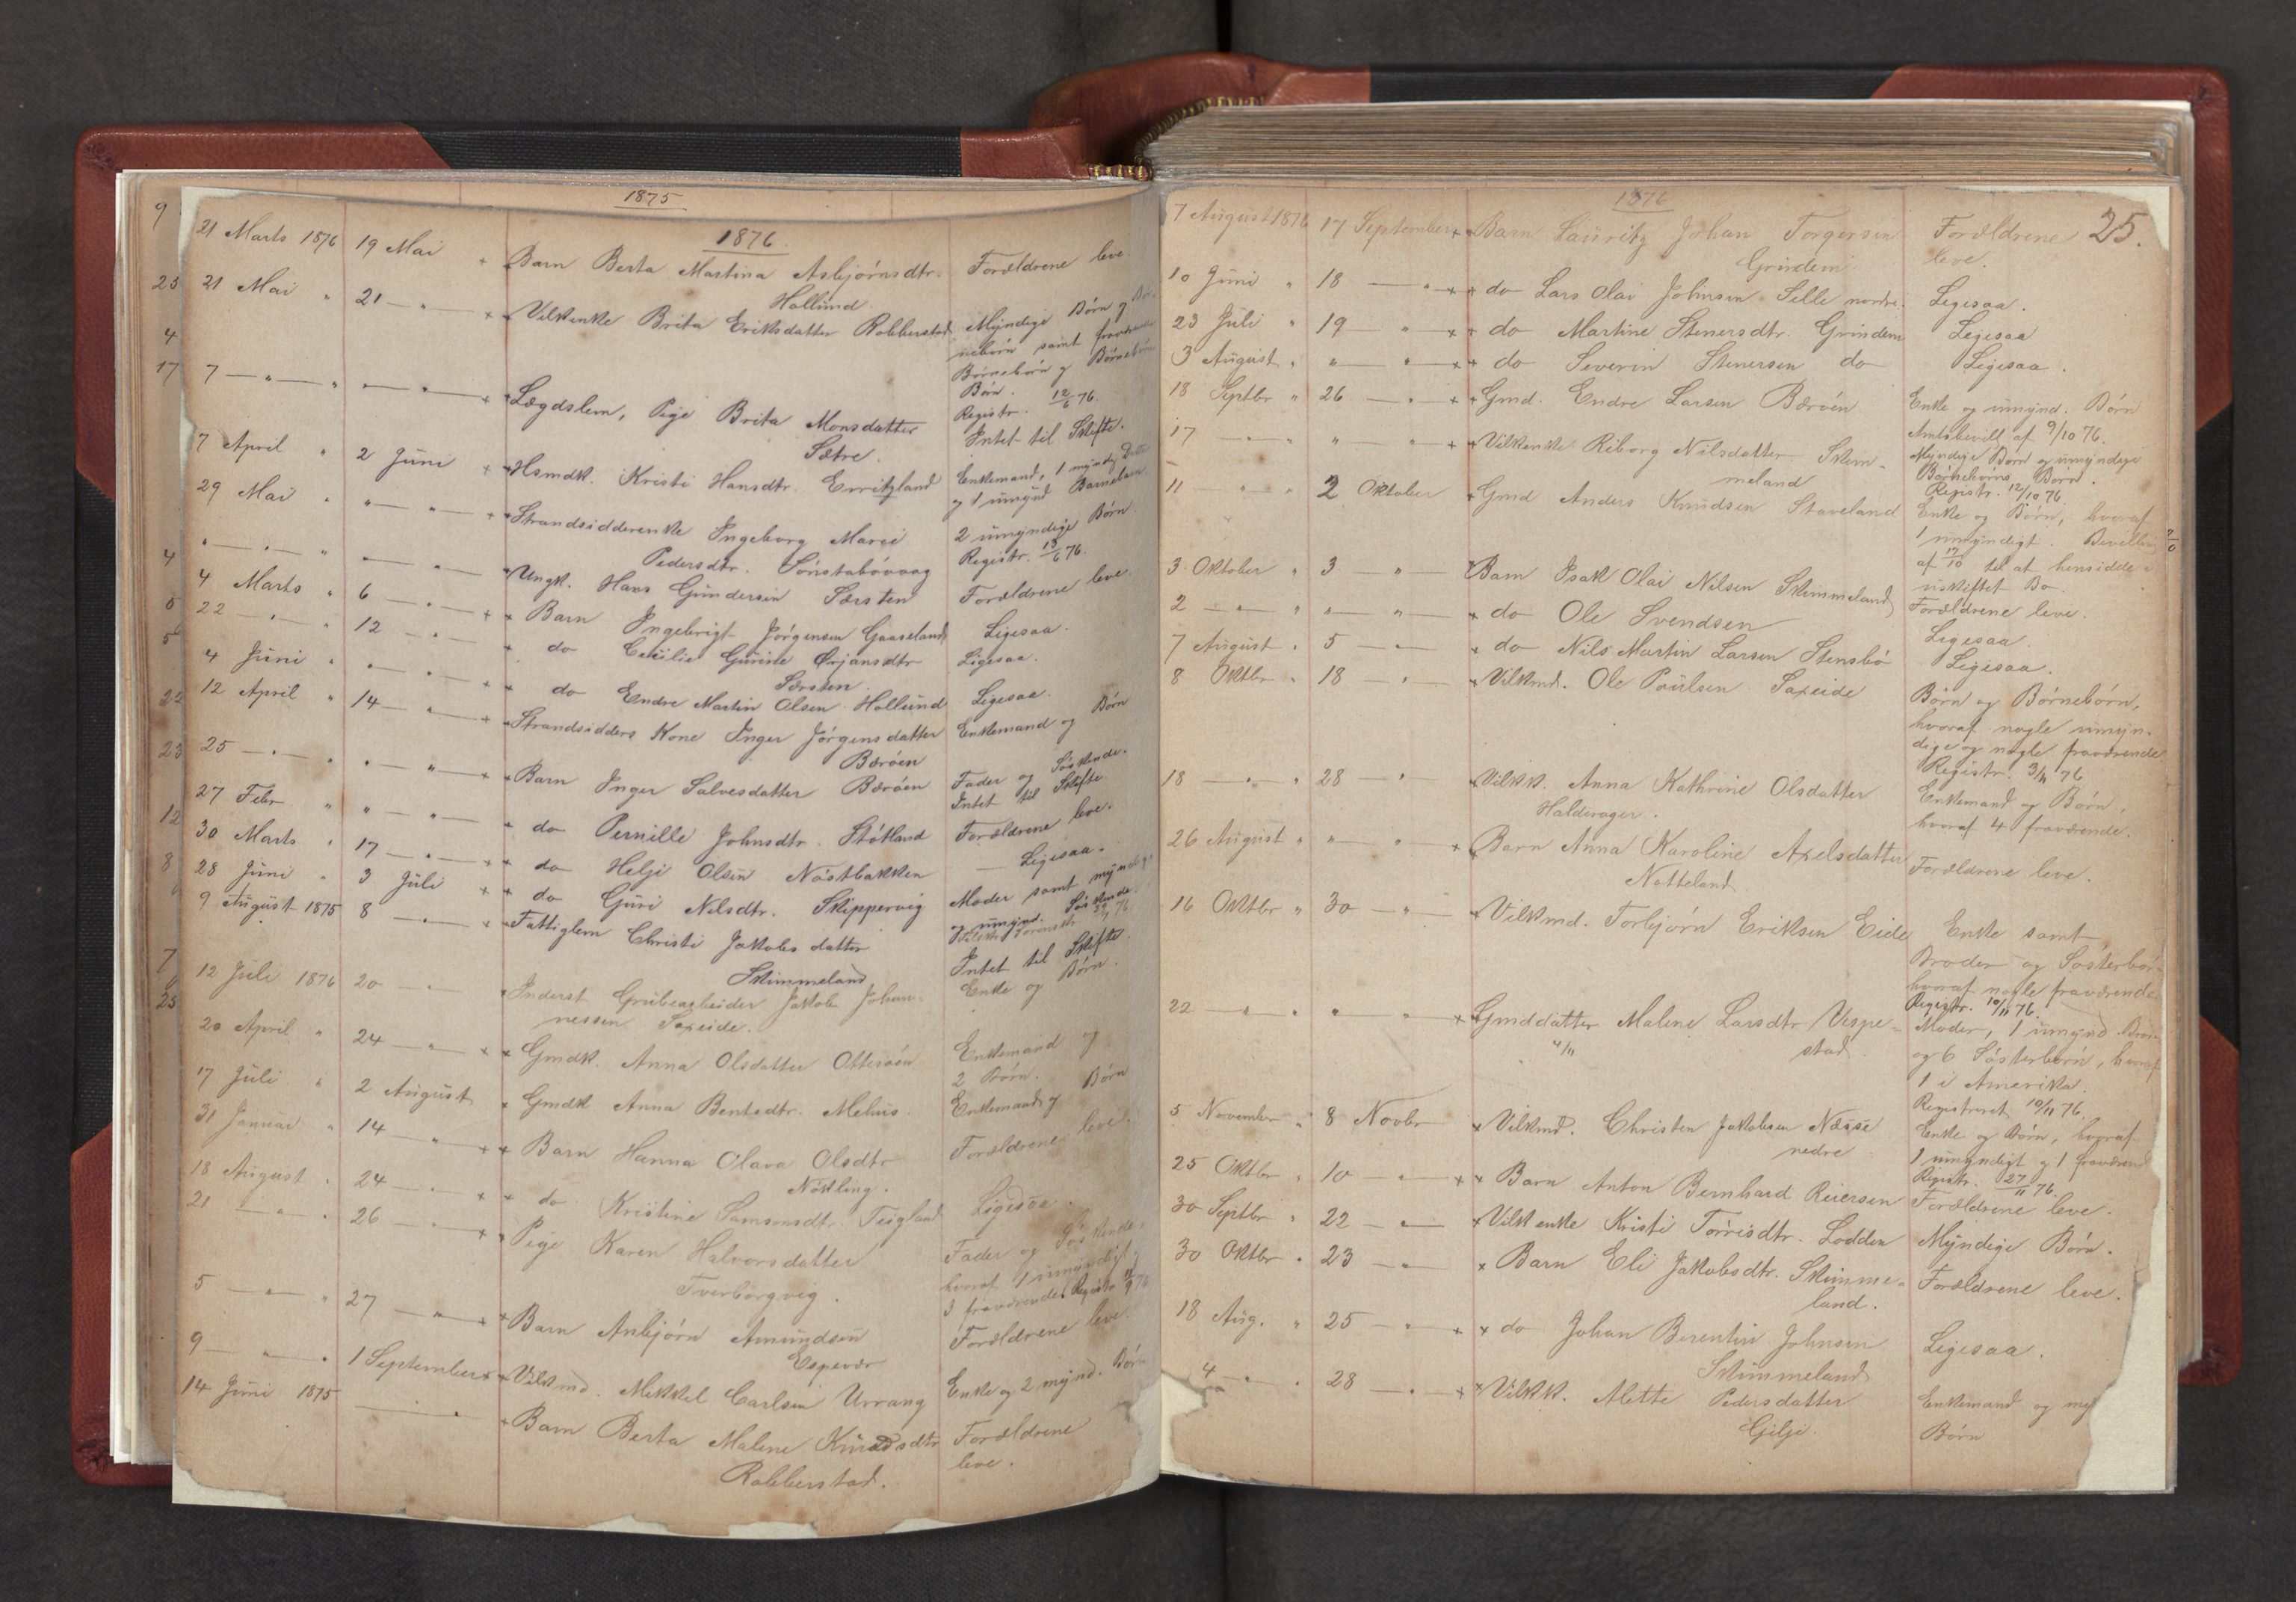 1875
1876
21 Marts 1876 19 Mai Barn Berta Martina Asbjörnsdtr. Forældrene leve
Hollund
21 Mai " 21 — " — Vilkenke Brita Eriksdatter Robberstad Myndige Börn og
nebörn samt
Börnebörn og Börnebörns
Börn.
Registr. 12/6 76.
7 — " — " — " — Lægdslem, Pige Brita Monsdatter Intet til Skifte.
Sætre.
7 April " 2 Juni Hsmdk. Kristi Hansdtr. Erritzland Enkemand, 1 myndig
og 1 umynd Barnebarn
29 Mai " " — " Strandsidderenke Ingeborg Marie 2 umyndige Börn.
Pedersdtr. Sönstabövaag Registr. 13/6 76.
" — " — " — " — Ungk. Hans Gundersen Særsten Forældrene leve.
4 Marts " 6 — " — Barn Ingebrigt Jörgensen Gaaseland Ligesaa.
22 — " — " 12 — " — do Cecilie Gurine Ørjansdtr Ligesaa.
Særsten.
4 Juni " " — " — do Endre Martin Olsen Hollund Ligesaa.
12 April " 14 — " — Strandsidders Kone Inger Jörgensdatter Enkemand og Börn
Børöen
25 — " — " " — " — Barn Inger Salvesdatter Børöen Fader og Söskende.
Intet til Skifte.
27 Febr " " — " — do Pernille Johnsdtr. Stökland Forældrene leve.
30 Marts " 17 — " — do Helje Olsen Nöstbakken — Ligesaa.
28 Juni " 3 Juli do Guri Nilsdtr. Skippervig Moder samt myndige
og umynd. Söskende.
9 August 1875 8 — " — Fattiglem Christi Jakobsdatter
Skimmeland Intet til Skifte.
12 Juli 1876 20 — " — Inderst Grubearbeider Jakob Johan- Enke og Börn.
nessen Saxeide.
20 April " 24 — " — Gmdk. Anna Olsdatter Otteröen Enkemand og
2 Börn.
17 Juli " 2 August Gmdk Anna Bentsdtr. Mehus. Enkemand og Börn
31 Januar " 14 — " — Barn Hanna Olava Olsdtr Forældrene leve.
Nökling.
18 August " 24 — " — do Kristine Samsonsdtr. Teigland Ligesaa.
21 — " — " 26 — " — Pige Karen Halvorsdatter Fader og Söskende,
Tverborgvig. hvoraf 1 umyndigt,
3 fraværende. Registr.
5 — " — " 27 — " — Barn Asbjörn Amundsen Forældrene leve.
Espevær
9 — " — " 1 September Vilkmd. Mikkel Carlsen Urrang Enke og 2 mynd. Börn
14 Juni 1875 — " — Barn Berta Malene Knudsdtr Forældrene
Robberstad. leve.
1876
25.
7 August 1876 17 September Barn Lauritz Johan Torgersen Forældrene
Grindem leve.
10 Juni " 18 — " — do Lars Olai Johnsen Selle nordre. Ligesaa.
23 Juli " 19 — " — do Martine Stenersdtr. Grindem Ligesaa
3 August " " — " — do Severin Stenersen do Ligesaa.
18 Septbr " 26 — " — Gmd. Endre Larsen Børöen Enke og umynd. Börn
Amtsbevill af 9/10 76.
17 — " — " " — " — Vilkenke Riborg Nilsdatter Skim- Myndige Börn og umyndige
meland Börnebörns Börn.
Registr. 12/10 76
11 — " — " 2 Oktober Gmd Anders Knudsen Staveland Enke og Börn, hvoraf
1 umyndigt. Bevilling
af 17/10 til at hensidde i
uskiftet Bo.
3 Oktober " 3 — " — Barn Isak Olai Nilsen Skimmeland Forældrene leve.
2 — " — " " — " — do Ole Svendsen Ligesaa.
7 August " 5 — " — do Nils Martin Larsen Stensbö Ligesaa.
8 Oktbr " 18 — " — Vilkmd. Ole Poulsen Saxeide Börn og Börnebörn,
hvoraf nogle umyn-
dige og nogle fraværende
Registr. 3/11 76
18 — " — " 28 — " — Vilkk. Anna Kathrine Olsdatter Enkemand og Börn,
Halderager. hvoraf 4 fraværende.
26 August " " — " — Barn Anna Karoline Axelsdatter Forældrene leve.
Notteland
16 Oktbr " 30 — " — Vilkmd. Torbjörn Eriksen Eide Enke samt
Broder og Sösterbör-
hvoraf nogle fraværende
Registr. 10/11 76.
22 — " — " " — " — Gmddatter Malene Larsdtr Vespe- Moder, 1 umynd.
4/11 stad og 6 Sösterbörn, hvoraf
1 i Amerika.
Registreret 10/11 76.
5 November " 8 Novbr Vilkmd. Christen Jakobsen Næsse Enke og Börn, hvoraf
nedre 1 umyndigt og 1 fraværend
Registr. 27/11 76.
25 Oktbr " 10 — " — Barn Anton Bernhard Reiersen Forældrene leve.
30 Septbr " 22 — " — Vilkenke Kristi Torrisdtr. Lodden Myndige Börn.
30 Oktbr " 23 — " — Barn Eli Jakobsdtr. Skimme- Forældrene leve.
land.
18 Aug. " 25 — " — do Johan Berentin Johnsen Ligesaa.
Skimmeland
4 — " — " 28 — " — Vilkk. Mette Pedersdatter Enkemand og my
Gilje. Börn